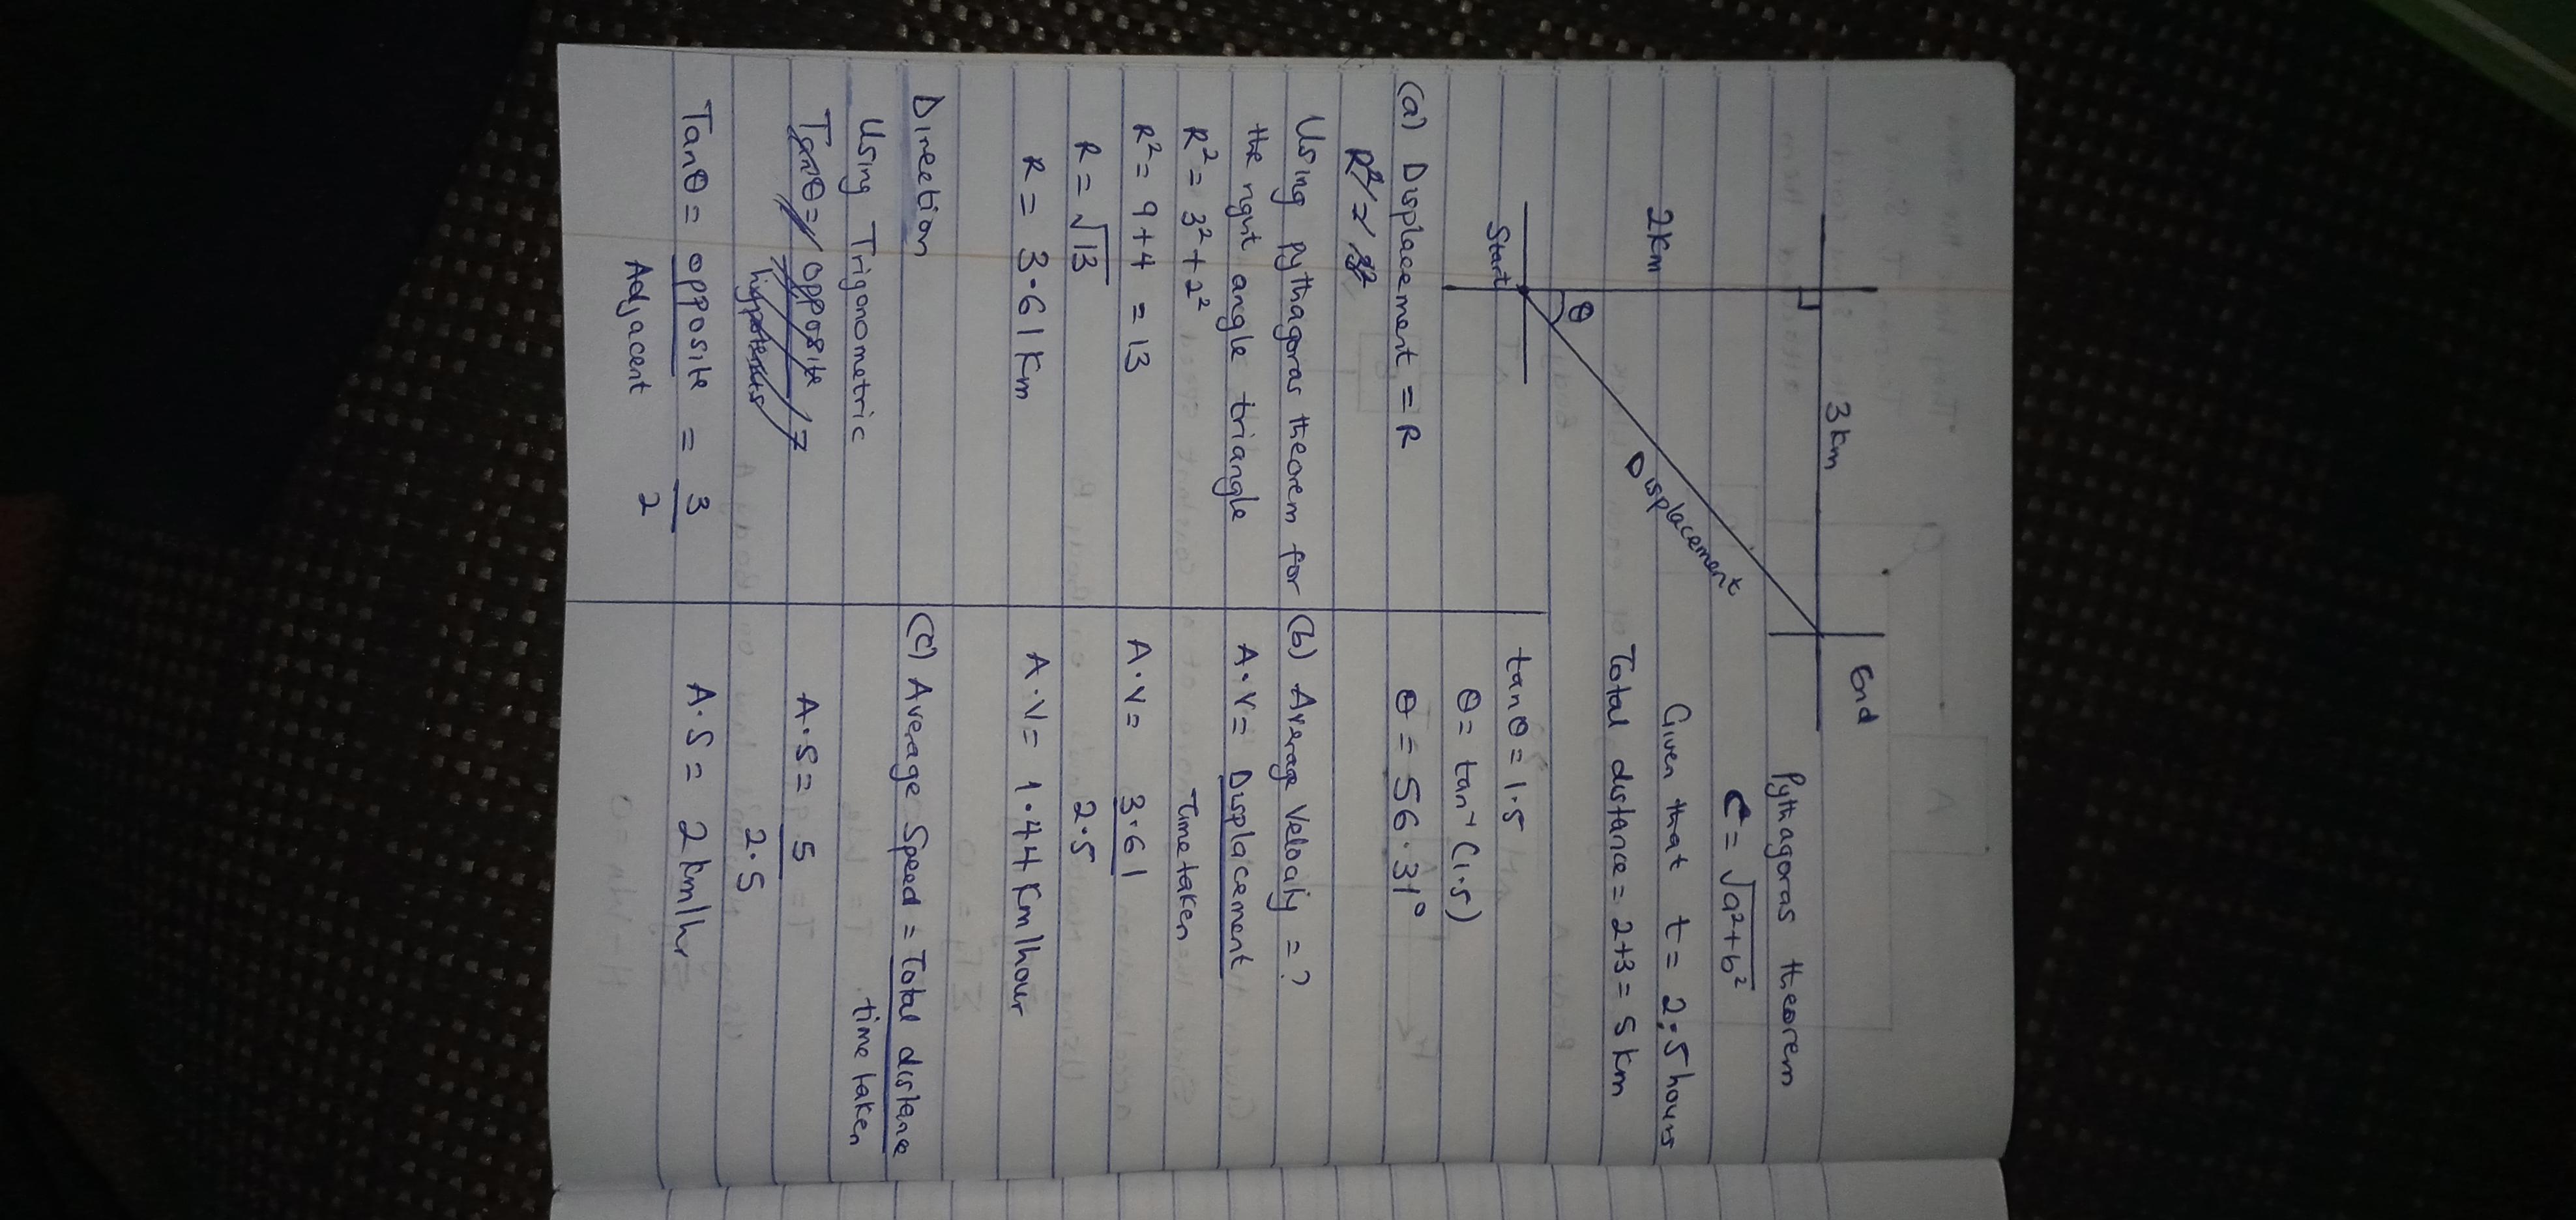 End
3km
2km
Displacement
θ
Start
Pythagoras theorem
C = √a²+b²
Given that t = 2.5 hours
Total distance = 2+3 = 5 km
(a) Displacement = R
R² = 3²
Using pythagoras theorem for
the right angle triangle
R² = 3² + 2²
R² = 9+4 = 13
R = √13
R = 3.61 Km
Direction
Using Trigonometric
Tanθ = opposite =
Tanθ = opposite = 3
Adjacent 2
tanθ = 1.5
θ = tan⁻¹ (1.5)
θ = 56.31°
(b) Average Velocity = ?
A.V = Displacement
Time taken
A.V = 3.61
2.5
A.V = 1.44 Km/hour
(c) Average Speed = Total distance
time taken
A.S = 5
2.5
A.S = 2 km/hr